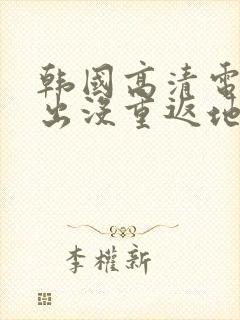 韩國高清電
出沒重返地
李權新